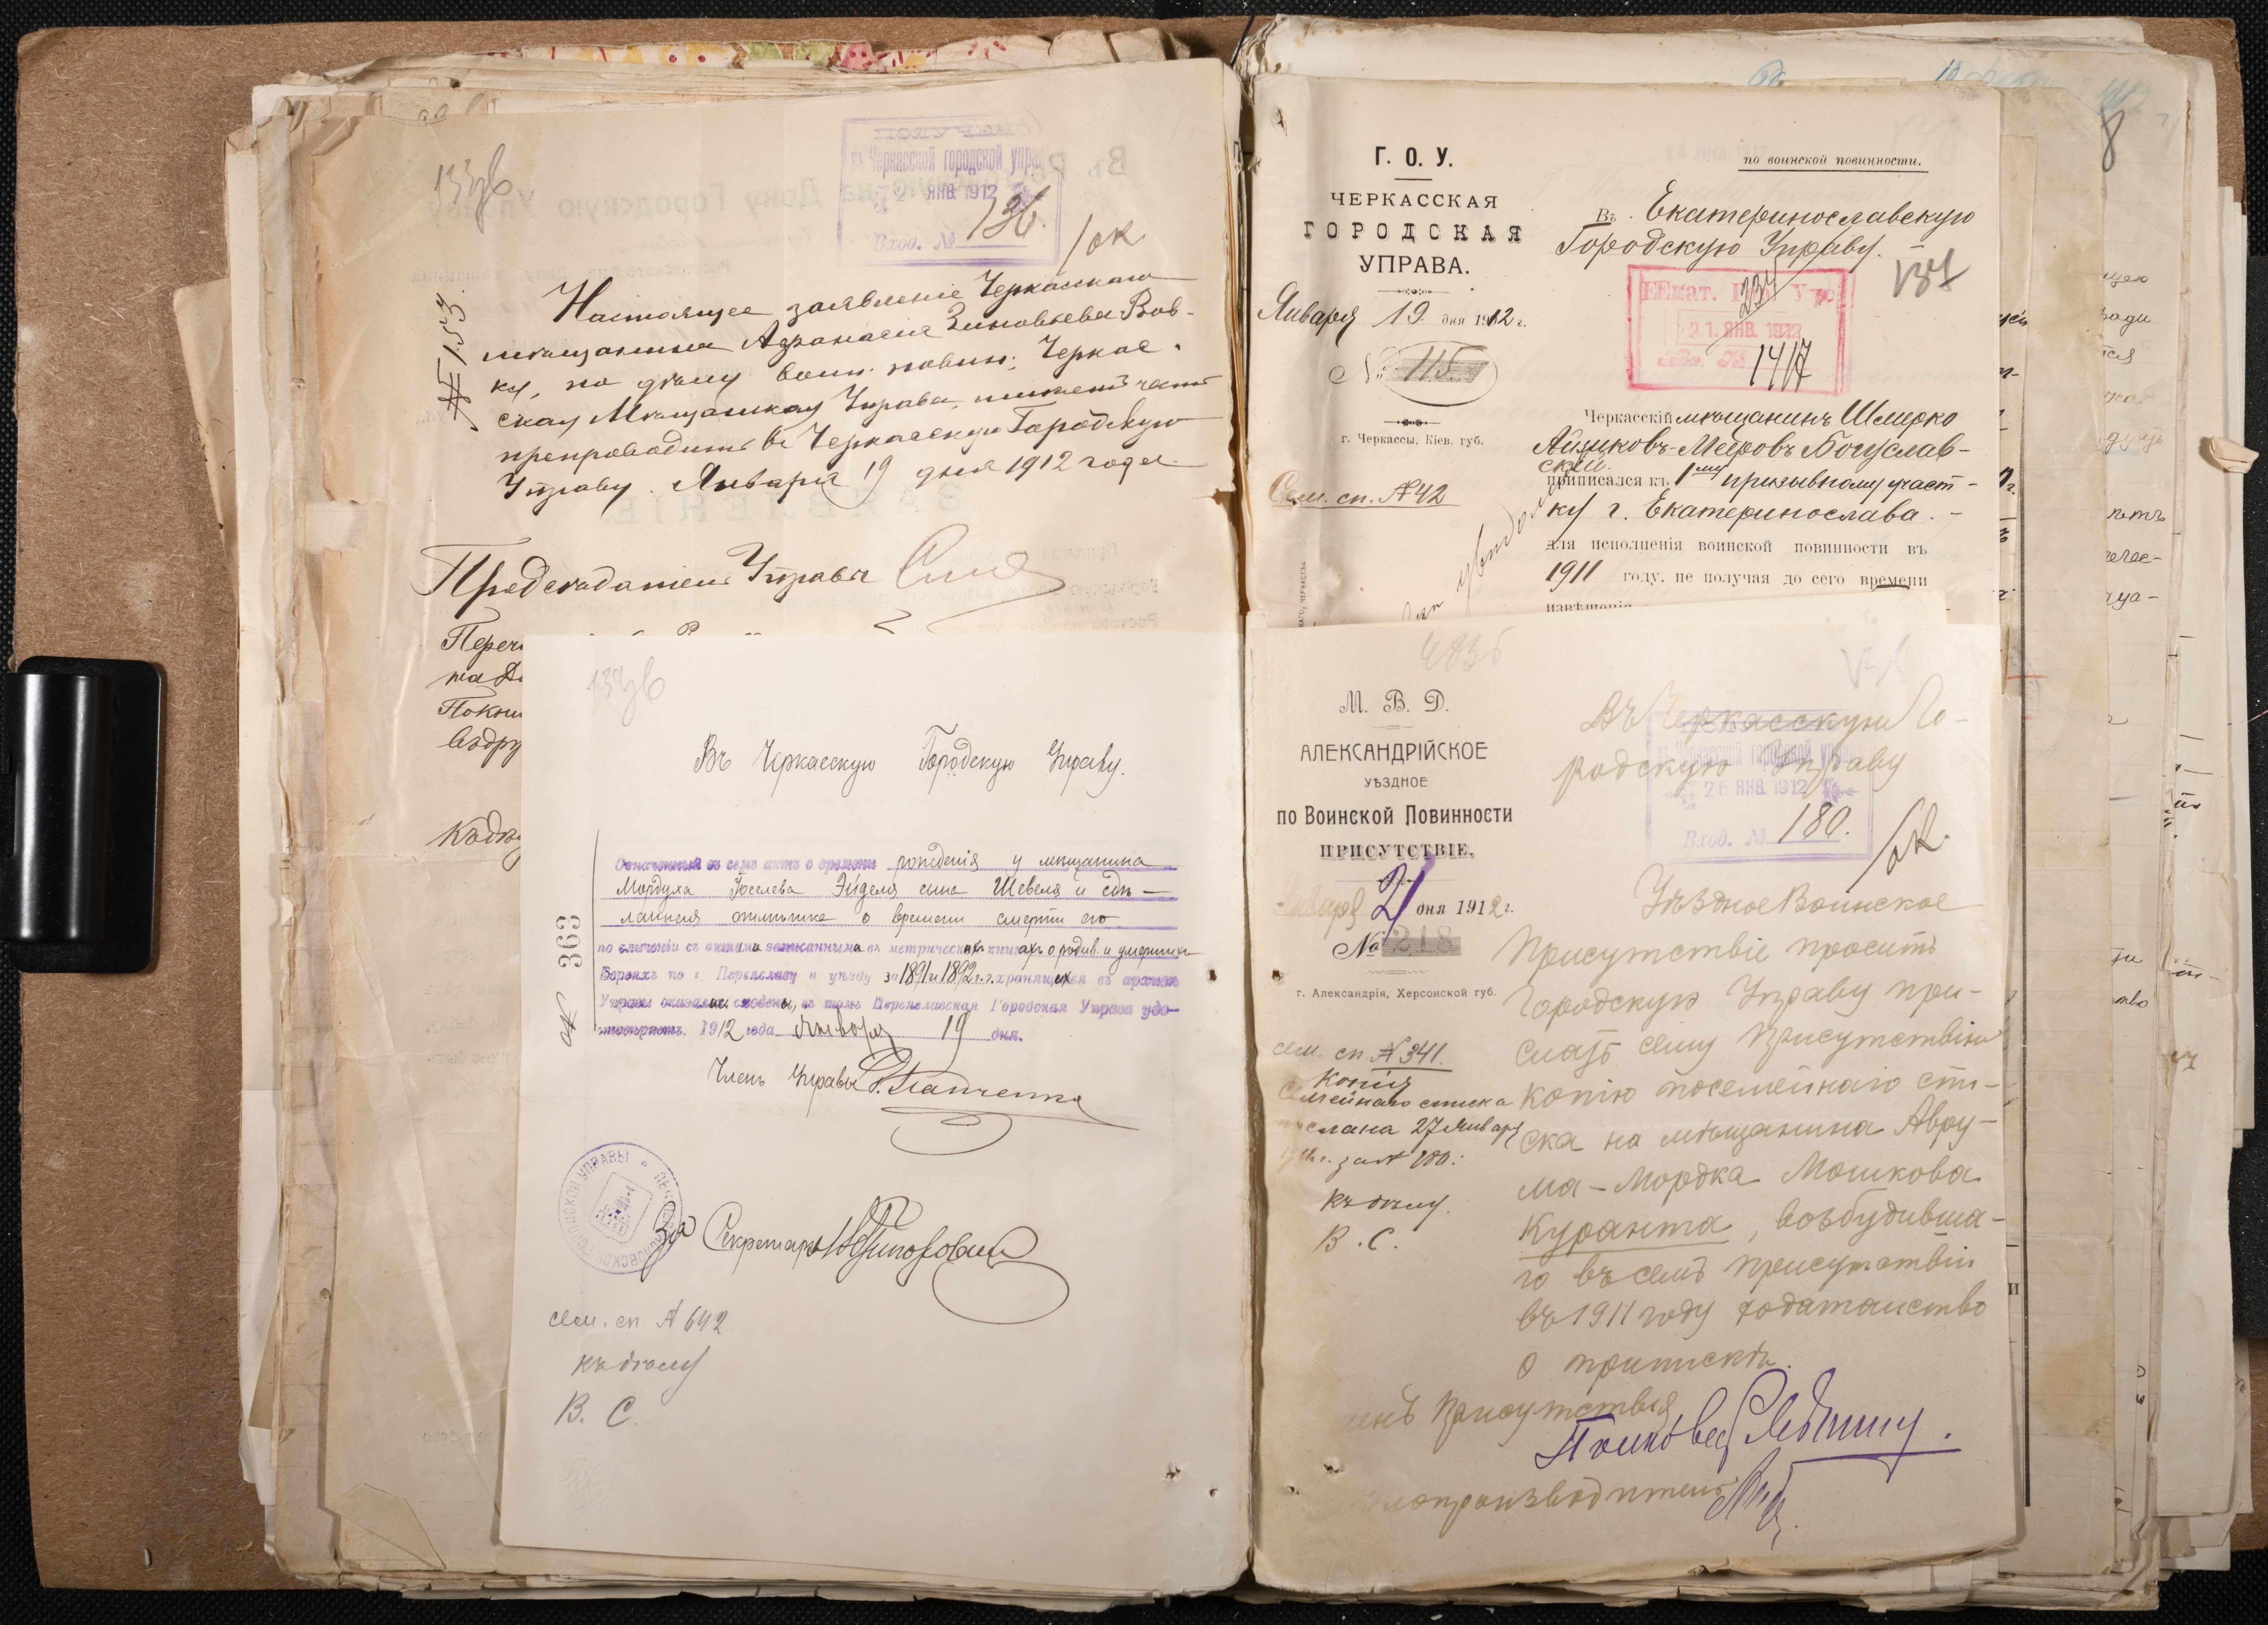 133об
въ Черкасской городской управ
2 ЯНВ 1912
Вход. № 136.
/ок
№ 153.
Настоящее заявленіе Черкасскаго
мѣщанина Афанасія Зиновьева Вов-
ку, по дѣлу воин. повин., Черкас-
ская Мѣщанская Управа,
препроводить въ Черкасскую Городскую
Управу. Января 19 дня 1912 года.
Предсѣдатель Управы
на До
Къ дѣлу
Въ Черкасскую Городскую Управу.
Означенный въ семъ актѣ о времени рожденія у мѣщанина
Мордуха Іоселева Эйделя сына Шевеля и сдѣ-
ланная отмѣтка о времени смерти его
по сличеніи съ актами записанными въ метрическихъ книгахъ о родив. и умершихъ
Евреяхъ по г. Переяславу и уѣзду за 1891 и 1892 г.г. хранящихся въ архивѣ
Управы оказались сходны, въ томъ Переяславская Городская Управа удо-
стовѣряетъ. 1912 года Января 19 дня.
№ 363
Членъ Управы
За Секретаря
сем. сп. № 642
къ дѣлу
В. С.
Г. О. У.
ЧЕРКАССКАЯ
ГОРОДСКАЯ
УПРАВА.
Января 19 дня 1912 г.
№ 115.
г. Черкассы, Кіев. губ.
Сем. сп. № 42
по воинской повинности.
Въ Екатеринославскую
Городскую Управу.
137
21. ЯНВ. 1912
1417
Черкасскій мѣщанинъ Шмерко
Айзиковъ-Мееровъ Богуслав-
скій.
приписался къ 1му призывному участ-
ку г. Екатеринослава.-
для исполненія воинской повинности въ
1911 году, не получая до сего времени
извѣщенія
М. В. Д.
АЛЕКСАНДРІЙСКОЕ
УѢЗДНОЕ
по Воинской Повинности
ПРИСУТСТВІЕ.
Января 21 дня 1912 г.
№ 218
г. Александрія, Херсонской губ.
сем. сп. № 341.
Копія
Семейнаго списка
послана 27 Января
1912 г. за № 180.
къ дѣлу.
В. С.
Въ Черкасскую Го-
родскую Управу
въ Черкасской городской управ
26 ЯНВ. 1912
Вход. № 180.
/ок.
Уѣздное Воинское
Присутствіе проситъ
Городскую Управу при-
слать сему Присутствію
копію посемейнаго спи-
ска на мѣщанина Авру-
ма-Мордка Мошкова
Куранта, возбудивша-
го въ семъ Присутствіи
въ 1911 году ходатайство
о припискѣ.
енъ Присутствія
лопроизводитель
8